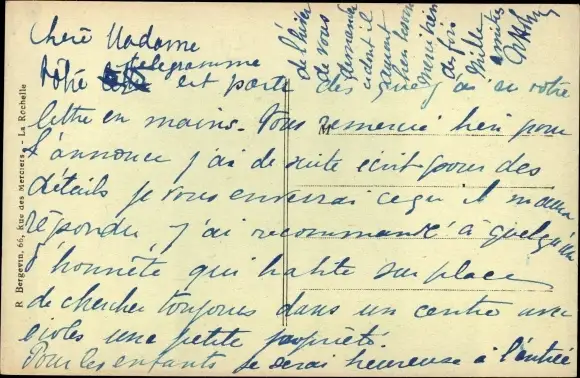 Chère Madame
Vôtre télégramme est parti dès que j'ai eu votre
lettre en mains. Vous remercie bien pour
l'annonce j'ai de suite écrit pour des
détails je vous enverrai ce qu'il m'aura
répondu j'ai recommandé à quelqu'un
d'honnête qui habite sur place
de chercher toujours dans un centre avec
écoles une petite propriété.
Pour les enfants je serai heureuse à l'entrée
de l'hiver
de vous
demander
s'ils
auront
bien
mille
amitiés
R. Bergevin, 66, Rue des Merciers, - La Rochelle